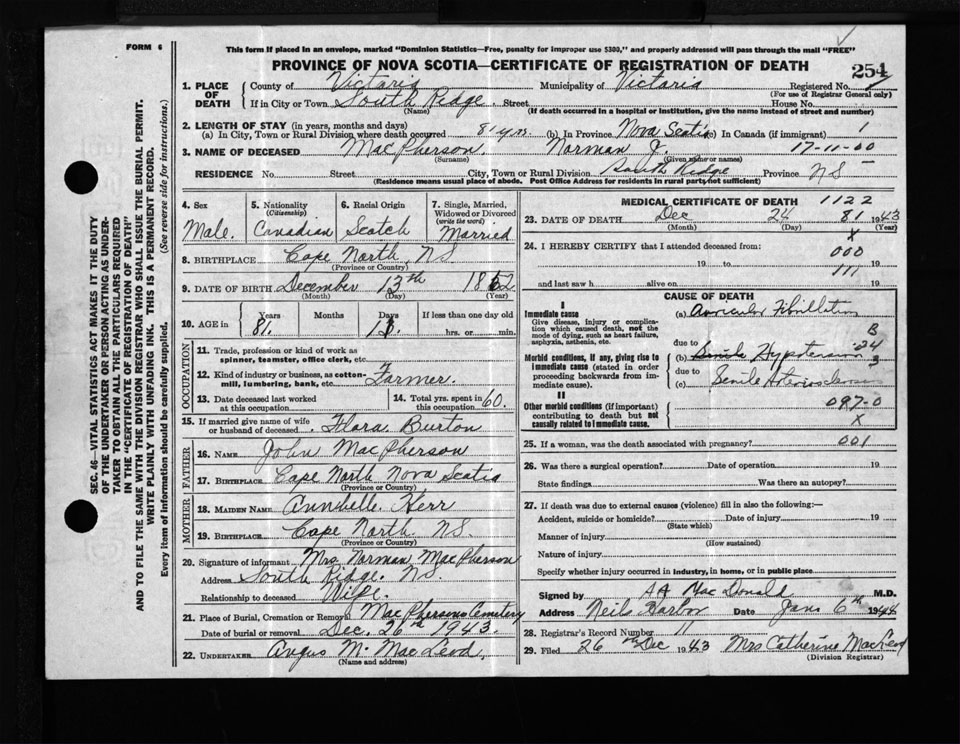 FORM 6
This form if placed in an envelope, marked "Dominion Statistics—Free, penalty for improper use $300," and properly addressed will pass through the mail "FREE"
PROVINCE OF NOVA SCOTIA—CERTIFICATE OF REGISTRATION OF DEATH
254
1. PLACE OF DEATH
County of Victoria Municipality of Victoria Registered No.
(For use of Registrar General only)
If in City or Town South Ridge. Street House No.
(Name) (If death occurred in a hospital or institution, give the name instead of street and number)
2. LENGTH OF STAY (in years, months and days)
(a) In City, Town or Rural Division, where death occurred 81 yrs. (b) In Province Nova Scotia (c) In Canada (if immigrant) 1
3. NAME OF DECEASED MacPherson. Norman J. 17-11-00
(Surname) (Given name or names)
RESIDENCE No. Street City, Town or Rural Division South Ridge Province NS
(Residence means usual place of abode. Post Office Address for residents in rural parts not sufficient)
4. Sex Male.
5. Nationality (Citizenship) Canadian
6. Racial Origin Scotch
7. Single, Married, Widowed or Divorced (write the word) Married
8. BIRTHPLACE Cape North, NS.
(Province or Country)
9. DATE OF BIRTH December 13th 1862
(Month) (Day) (Year)
10. AGE in Years 81. Months Days 13. If less than one day old hrs. or min.
OCCUPATION
11. Trade, profession or kind of work as spinner, teamster, office clerk, etc.
12. Kind of industry or business, as cotton-mill, lumbering, bank, etc. Farmer.
13. Date deceased last worked at this occupation
14. Total yrs. spent in this occupation 60.
15. If married give name of wife or husband of deceased Flora Burton
FATHER
16. NAME John MacPherson
17. BIRTHPLACE Cape North Nova Scotia
(Province or Country)
MOTHER
18. MAIDEN NAME Annabelle Kerr
19. BIRTHPLACE Cape North NS.
(Province or Country)
20. Signature of informant Mrs Norman MacPherson
Address South Ridge. NS.
Relationship to deceased Wife.
21. Place of Burial, Cremation or Removal MacPhersons Cemetery
Date of burial or removal Dec. 26th 1943.
22. UNDERTAKER Angus M. MacLeod,
(Name and address)
MEDICAL CERTIFICATE OF DEATH 1122
23. DATE OF DEATH Dec 24 81 1943
(Month) (Day) (Year)
X
24. I HEREBY CERTIFY that I attended deceased from:
000
19 to 19
111
and last saw h alive on 19
CAUSE OF DEATH
I
Immediate cause
Give disease, injury or complication which caused death, not the mode of dying, such as heart failure, asphyxia, asthenia, etc.
(a) Auricular Fibillation
B
due to 24
Morbid conditions, if any, giving rise to immediate cause (stated in order proceeding backwards from immediate cause).
(b) Senile Hypotension 3
due to
(c) Senile Arteriosclerosis
II
Other morbid conditions (if important) contributing to death but not causally related to immediate cause.
097-0
X
25. If a woman, was the death associated with pregnancy? 001
26. Was there a surgical operation? Date of operation 19
State findings Was there an autopsy?
27. If death was due to external causes (violence) fill in also the following:—
Accident, suicide or homicide? Date of injury 19
(State which)
Manner of injury
(How sustained)
Nature of injury
Specify whether injury occurred in industry, in home, or in public place
Signed by AA MacDonald M.D.
Address Neils Harbor Date Jan. 6th 1944
28. Registrar's Record Number 11
29. Filed 26th Dec 1943 Mrs Catherine MacLeod
(Division Registrar)
SEC. 46—VITAL STATISTICS ACT MAKES IT THE DUTY
OF THE UNDERTAKER OR PERSON ACTING AS UNDER-
TAKER TO OBTAIN ALL THE PARTICULARS REQUIRED
IN THE "CERTIFICATE OF REGISTRATION OF DEATH"
AND TO FILE THE SAME WITH THE DIVISION REGISTRAR WHO SHALL ISSUE THE BURIAL PERMIT.
WRITE PLAINLY WITH UNFADING INK. THIS IS A PERMANENT RECORD.
Every item of information should be carefully supplied. (See reverse side for instructions.)